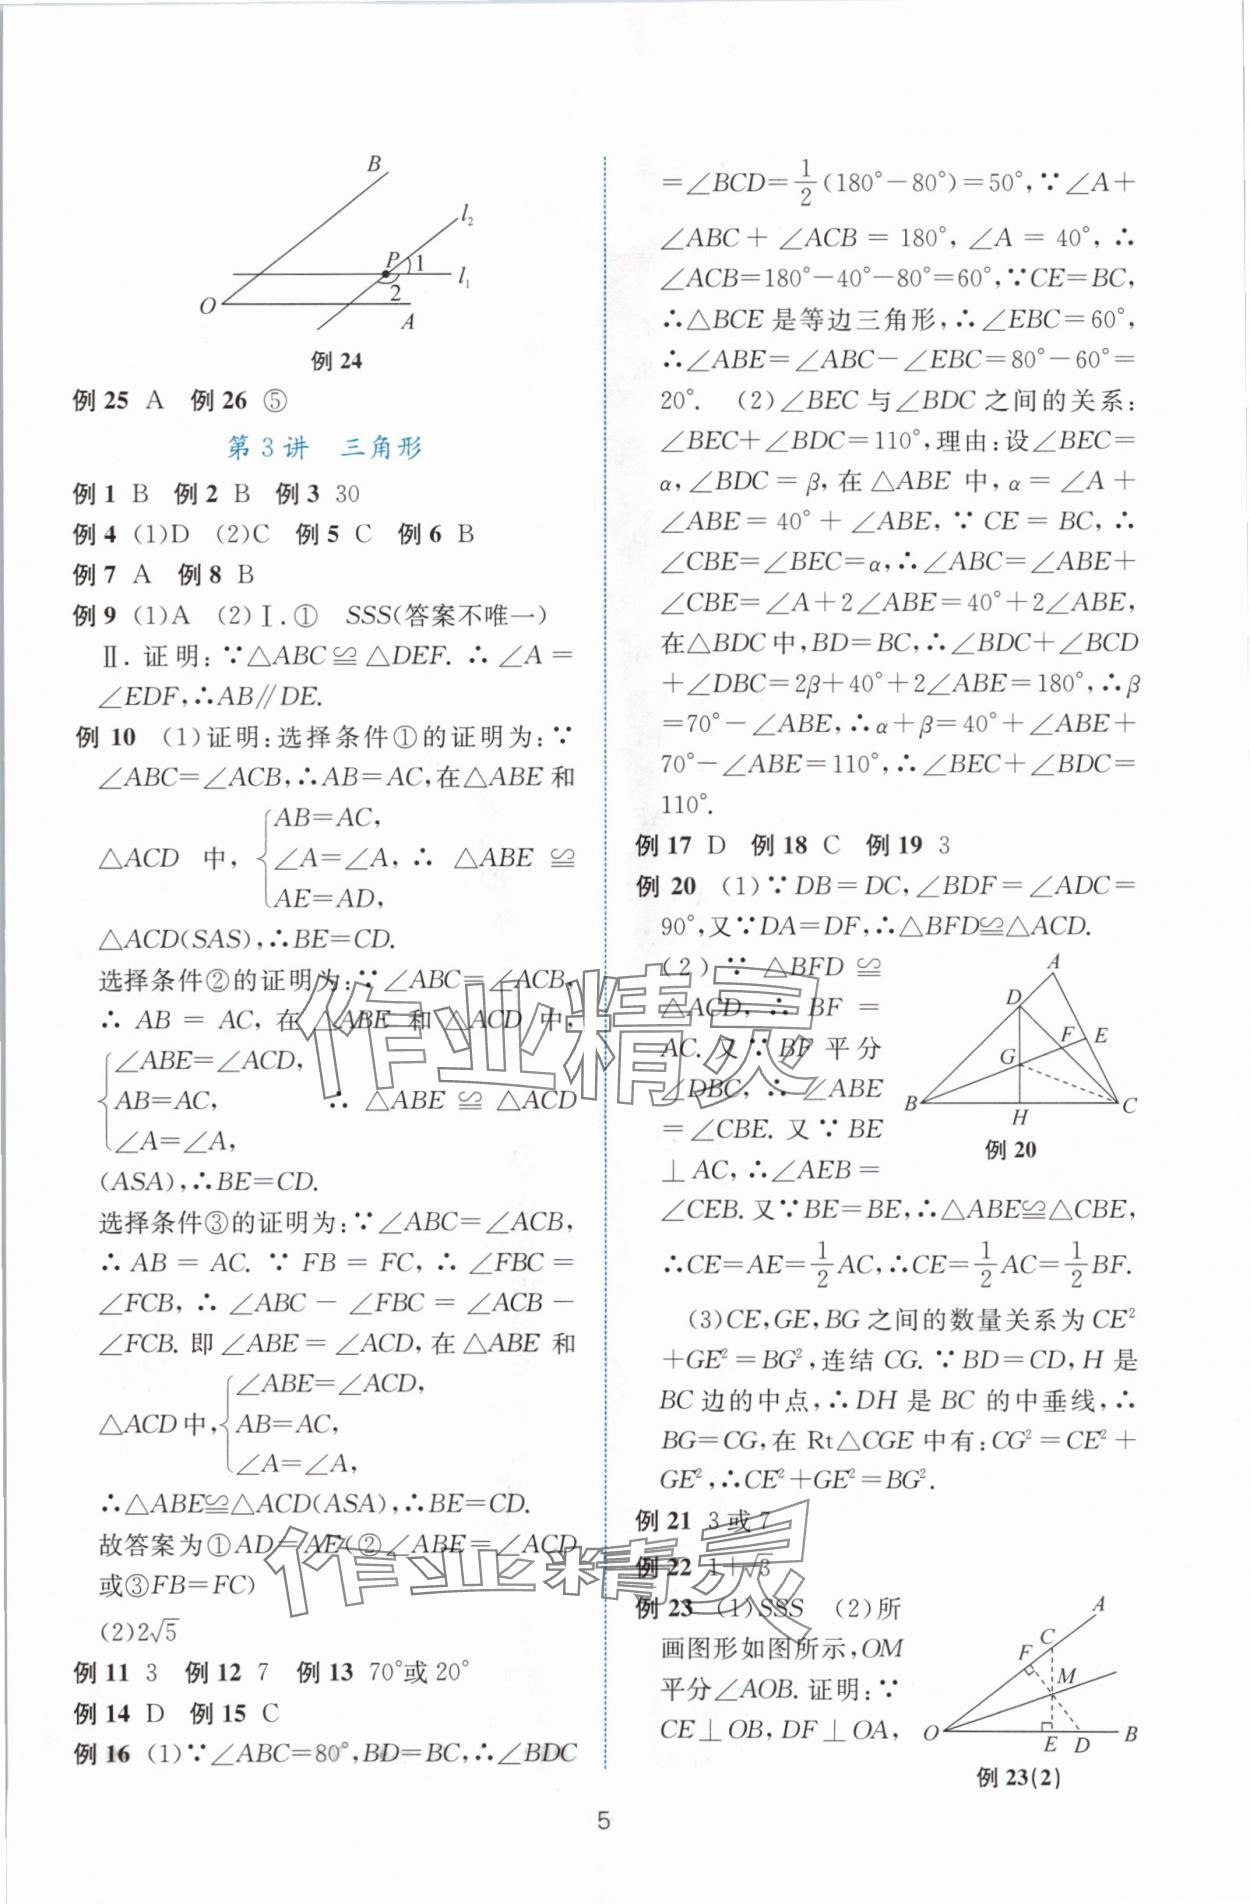 B
l₂
P
1
l₁
2
O
A
例 24
例 25 A 例 26 ⑤
第 3 讲 三角形
例 1 B 例 2 B 例 3 30
例 4 (1)D (2)C 例 5 C 例 6 B
例 7 A 例 8 B
例 9 (1)A (2)Ⅰ.① SSS(答案不唯一)
Ⅱ. 证明：∵△ABC≌△DEF. ∴∠A=
∠EDF,∴AB∥DE.
例 10 (1)证明：选择条件①的证明为：∵
∠ABC=∠ACB,∴AB=AC,在△ABE 和
AB=AC,
△ACD 中, ∠A=∠A, ∴ △ABE ≌
AE=AD,
△ACD(SAS),∴BE=CD.
选择条件②的证明为：∵∠ABC=∠ACB,
∴ AB = AC, 在 △ABE 和 △ACD 中,
∠ABE=∠ACD,
AB=AC, ∴ △ABE ≌ △ACD
∠A=∠A,
(ASA),∴BE=CD.
选择条件③的证明为：∵∠ABC=∠ACB,
∴ AB = AC. ∵ FB = FC, ∴ ∠FBC =
∠FCB, ∴ ∠ABC - ∠FBC = ∠ACB -
∠FCB. 即∠ABE=∠ACD,在△ABE 和
∠ABE=∠ACD,
△ACD 中, AB=AC,
∠A=∠A,
∴△ABE≌△ACD(ASA),∴BE=CD.
故答案为①AD=AE(②∠ABE=∠ACD
或③FB=FC)
(2)2√5
例 11 3 例 12 7 例 13 70°或 20°
例 14 D 例 15 C
例 16 (1)∵∠ABC=80°,BD=BC,∴∠BDC
=∠BCD=1/2(180°-80°)=50°,∵∠A+
∠ABC+∠ACB=180°,∠A=40°,∴
∠ACB=180°-40°-80°=60°,∵CE=BC,
∴△BCE 是等边三角形,∴∠EBC=60°,
∴∠ABE=∠ABC-∠EBC=80°-60°=
20°. (2)∠BEC 与∠BDC 之间的关系：
∠BEC+∠BDC=110°,理由：设∠BEC=
α,∠BDC=β,在△ABE 中,α=∠A+
∠ABE=40°+∠ABE,∵CE=BC,∴
∠CBE=∠BEC=α,∴∠ABC=∠ABE+
∠CBE=∠A+2∠ABE=40°+2∠ABE,
在△BDC 中,BD=BC,∴∠BDC+∠BCD
+∠DBC=2β+40°+2∠ABE=180°,∴β
=70°-∠ABE,∴α+β=40°+∠ABE+
70°-∠ABE=110°,∴∠BEC+∠BDC=
110°.
例 17 D 例 18 C 例 19 3
例 20 (1)∵DB=DC,∠BDF=∠ADC=
90°,又∵DA=DF,∴△BFD≌△ACD.
(2) ∵ △BFD ≌
△ACD, ∴ BF =
AC. 又∵BF 平分
∠DBC, ∴ ∠ABE
=∠CBE. 又∵BE
⊥AC,∴∠AEB=
A
D
F
E
G
B
H
C
例 20
∠CEB. 又∵BE=BE,∴△ABE≌△CBE,
∴CE=AE=1/2AC,∴CE=1/2AC=1/2BF.
(3)CE,GE,BG 之间的数量关系为 CE²
+GE²=BG²,连结 CG. ∵BD=CD,H 是
BC 边的中点,∴DH 是 BC 的中垂线,∴
BG=CG,在 Rt△CGE 中有：CG²=CE²+
GE²,∴CE²+GE²=BG².
例 21 3 或 7
例 22 1+√3
例 23 (1)SSS (2)所
画图形如图所示,OM
平分∠AOB. 证明：∵
CE⊥OB,DF⊥OA,
A
C
F
M
O
E
D
B
例 23(2)
作业精灵
作业精灵
5